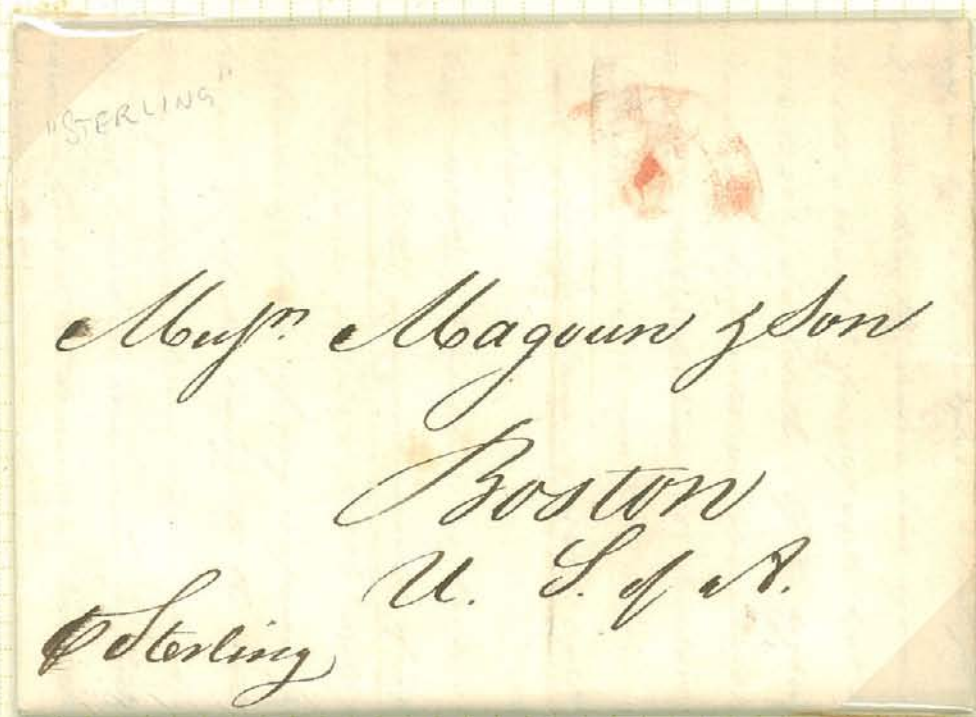 "STERLING"
Messrs. Magoun & Son
Boston
U. S. of A.
℗ Sterling